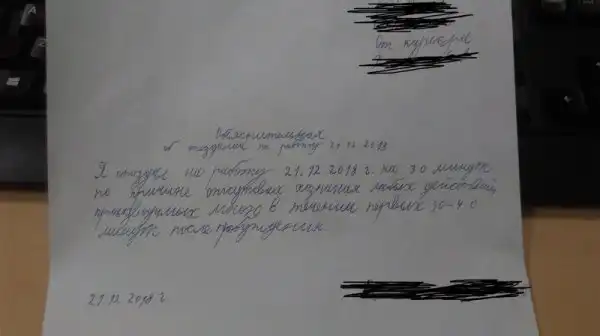 От курьера
Объяснительная
об опоздании на работу 21.12.2018
Я опоздал на работу 21.12.2018 г. на 30 минут
по причине отсутствия желания любых действий,
производимых мною в течении первых 30-40
минут после пробуждения.
21.12.2018 г.